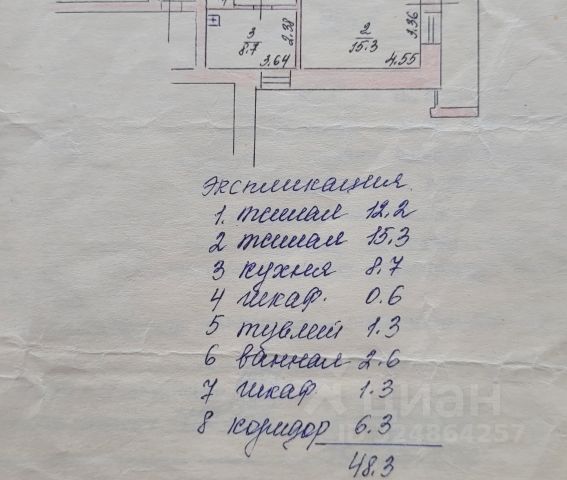 3
8.7
2.38
3.64
2
15.3
3.36
4.55
Экспликация.
1. жилая 12.2
2 жилая 15.3
3 кухня 8.7
4 шкаф. 0.6
5 туалет 1.3
6 ванная 2.6
7 шкаф 1.3
8 коридор 6.3
48.3
циан